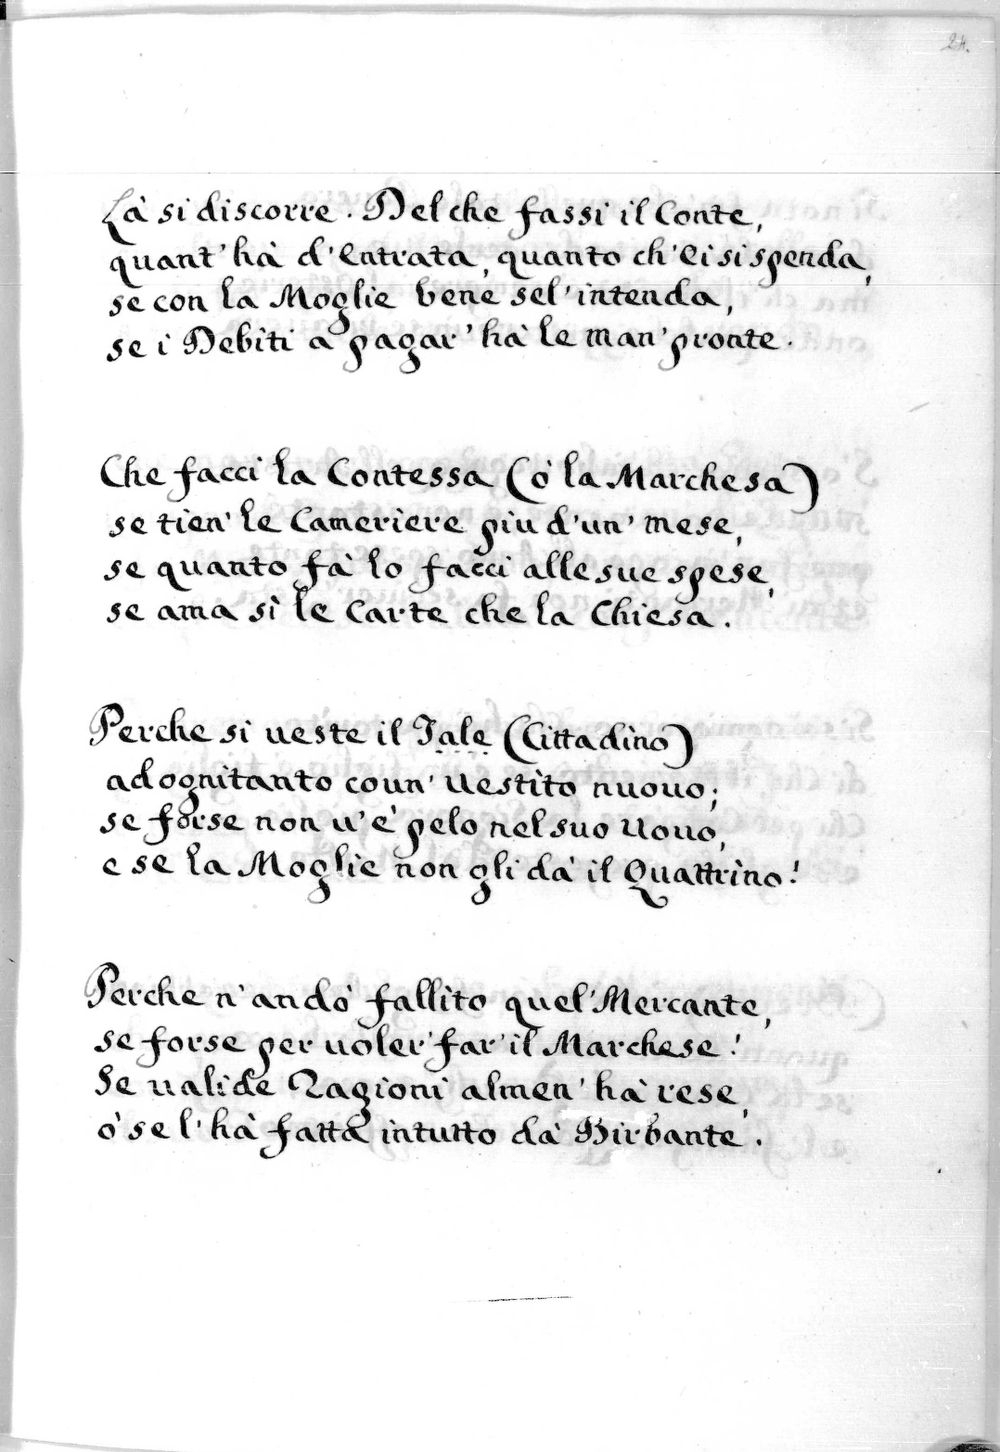 24.
Là si discorre. Del che fassi il Conte,
quant' hà d'Entrata, quanto ch'Ei si spenda,
se con la Moglie bene sel'intenda,
se i Debiti a pagar' hà le man' pronte.
Che facci la Contessa (ò la Marchesa)
se tien' le Cameriere piu d'un' mese,
se quanto fà lo facci alle sue spese,
se ama sì le Carte che la Chiesa.
Perche si ueste il Tale (Cittadino)
ad ognitanto coun' Uestito nuouo;
se forse non u'è pelo nel suo Uouo,
e se la Moglie non gli dà il Quattrino!
Perche n'andò fallito quel' Mercante,
se forse per uoler' far' il Marchese!
Se ualide Ragioni almen' hà rese,
ò se l'hà fatta intutto dà Birbante.